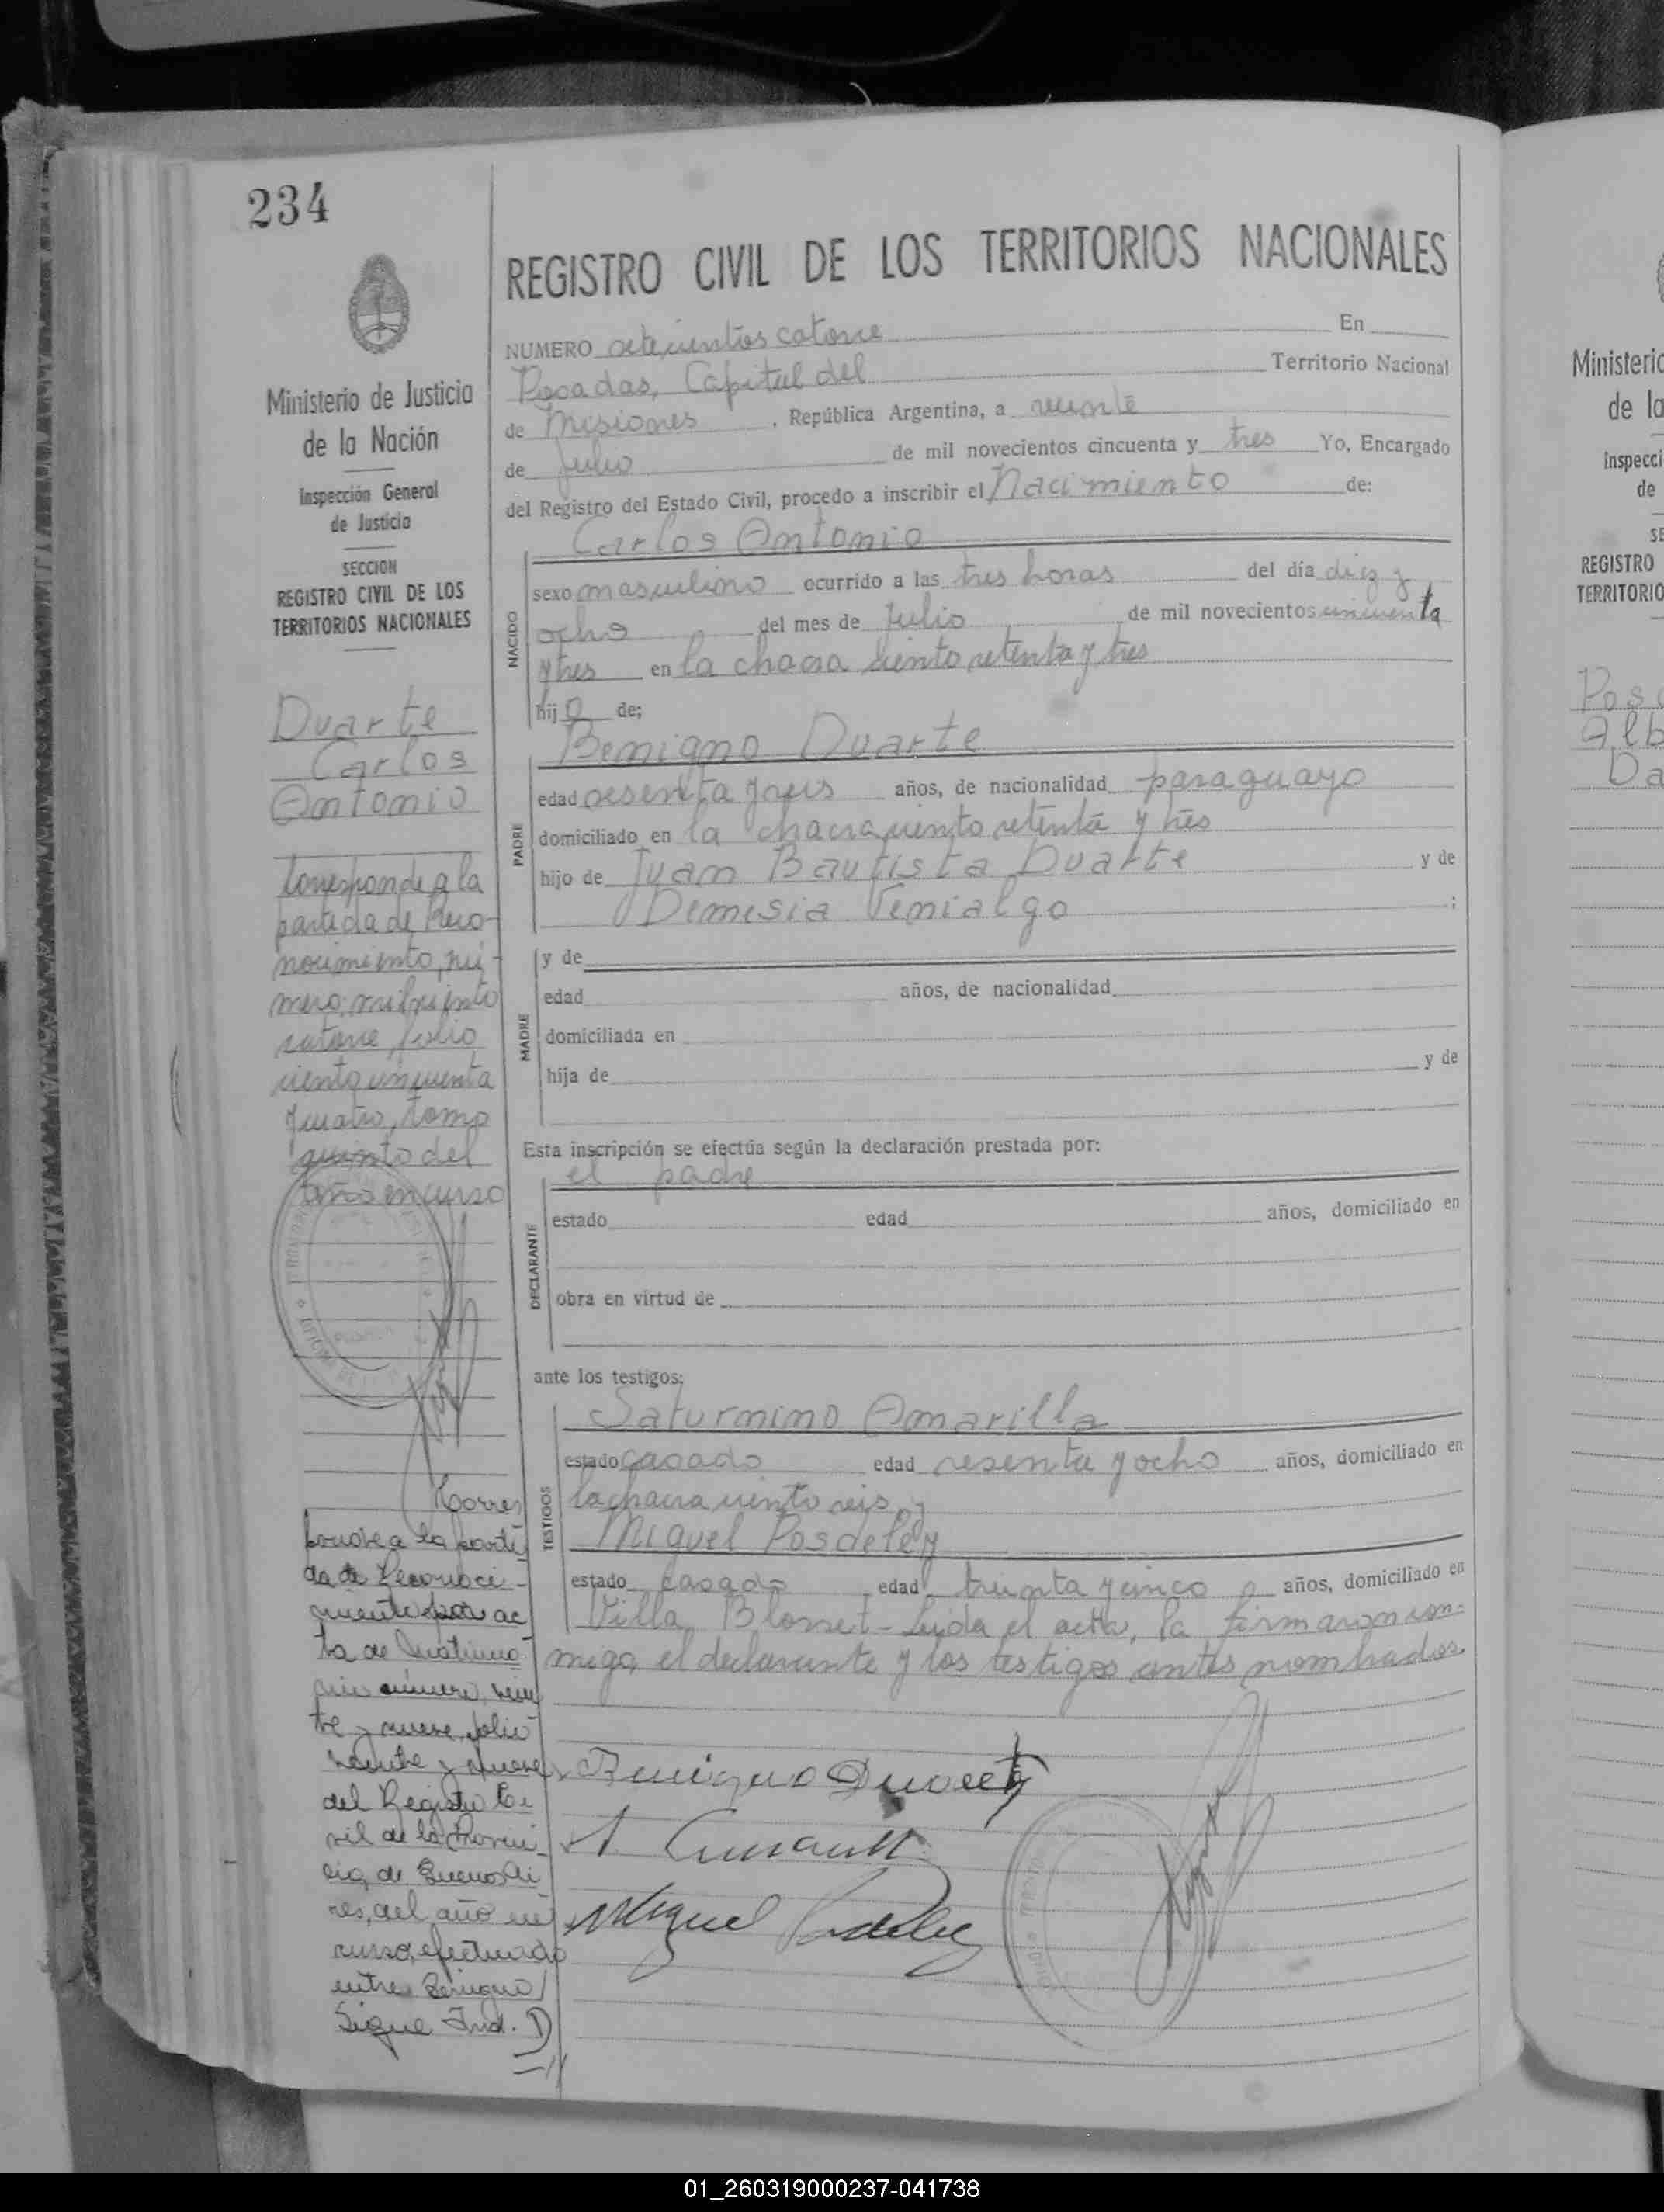 234
REGISTRO CIVIL DE LOS TERRITORIOS NACIONALES
Ministerio de Justicia
de la Nación
Inspección General
de Justicia
SECCION
REGISTRO CIVIL DE LOS
TERRITORIOS NACIONALES
Duarte
Carlos
Antonio
Corresponde a la
partida de Reco-
nocimiento, nú-
mero, mil ciento
catorce, folio
ciento cincuenta
y cuatro, tomo
quinto del
año en curso
Corres
ponde a la parti
da de Reconoci-
miento por ac
ta de Matrimo
nio número, vein
te y nueve, folio
veinte y nueve
del Registro Ci
vil de la Provin
cia de Buenos Ai
res, del año en
curso, efectuado
entre Benigno
Sigue Ind. D
NUMERO setecientos catorce En
Posadas, Capital del Territorio Nacional
de Misiones, República Argentina, a veinte
de Julio de mil novecientos cincuenta y tres Yo, Encargado
del Registro del Estado Civil, procedo a inscribir el Nacimiento de:
Carlos Antonio
NACIDO
sexo masculino ocurrido a las tres horas del día diez y
ocho del mes de Julio de mil novecientos cincuenta
y tres en la chacra ciento setenta y tres
hijo de;
Benigno Duarte
PADRE
edad sesenta y seis años, de nacionalidad paraguayo
domiciliado en la chacra ciento setenta y tres
hijo de Juan Bautista Duarte y de
Demesia Venialgo ;
MADRE
y de
edad años, de nacionalidad
domiciliada en
hija de y de
Esta inscripción se efectúa según la declaración prestada por:
el padre
DECLARANTE
estado edad años, domiciliado en
obra en virtud de
ante los testigos:
Saturnino Amarilla
TESTIGOS
estado casado edad sesenta y ocho años, domiciliado en
la chacra ciento seis, y
Miguel Posdeley
estado casado edad treinta y cinco años, domiciliado en
Villa Blosset - Leida el acta, la firmaron con-
migo, el declarante y los testigos antes nombrados.
Benigno Duarte
Miguel Posdeley
Ministerio
de la
Inspecci
de
SE
REGISTRO
TERRITORIO
Pos
Alb
Da
01_260319000237-041738